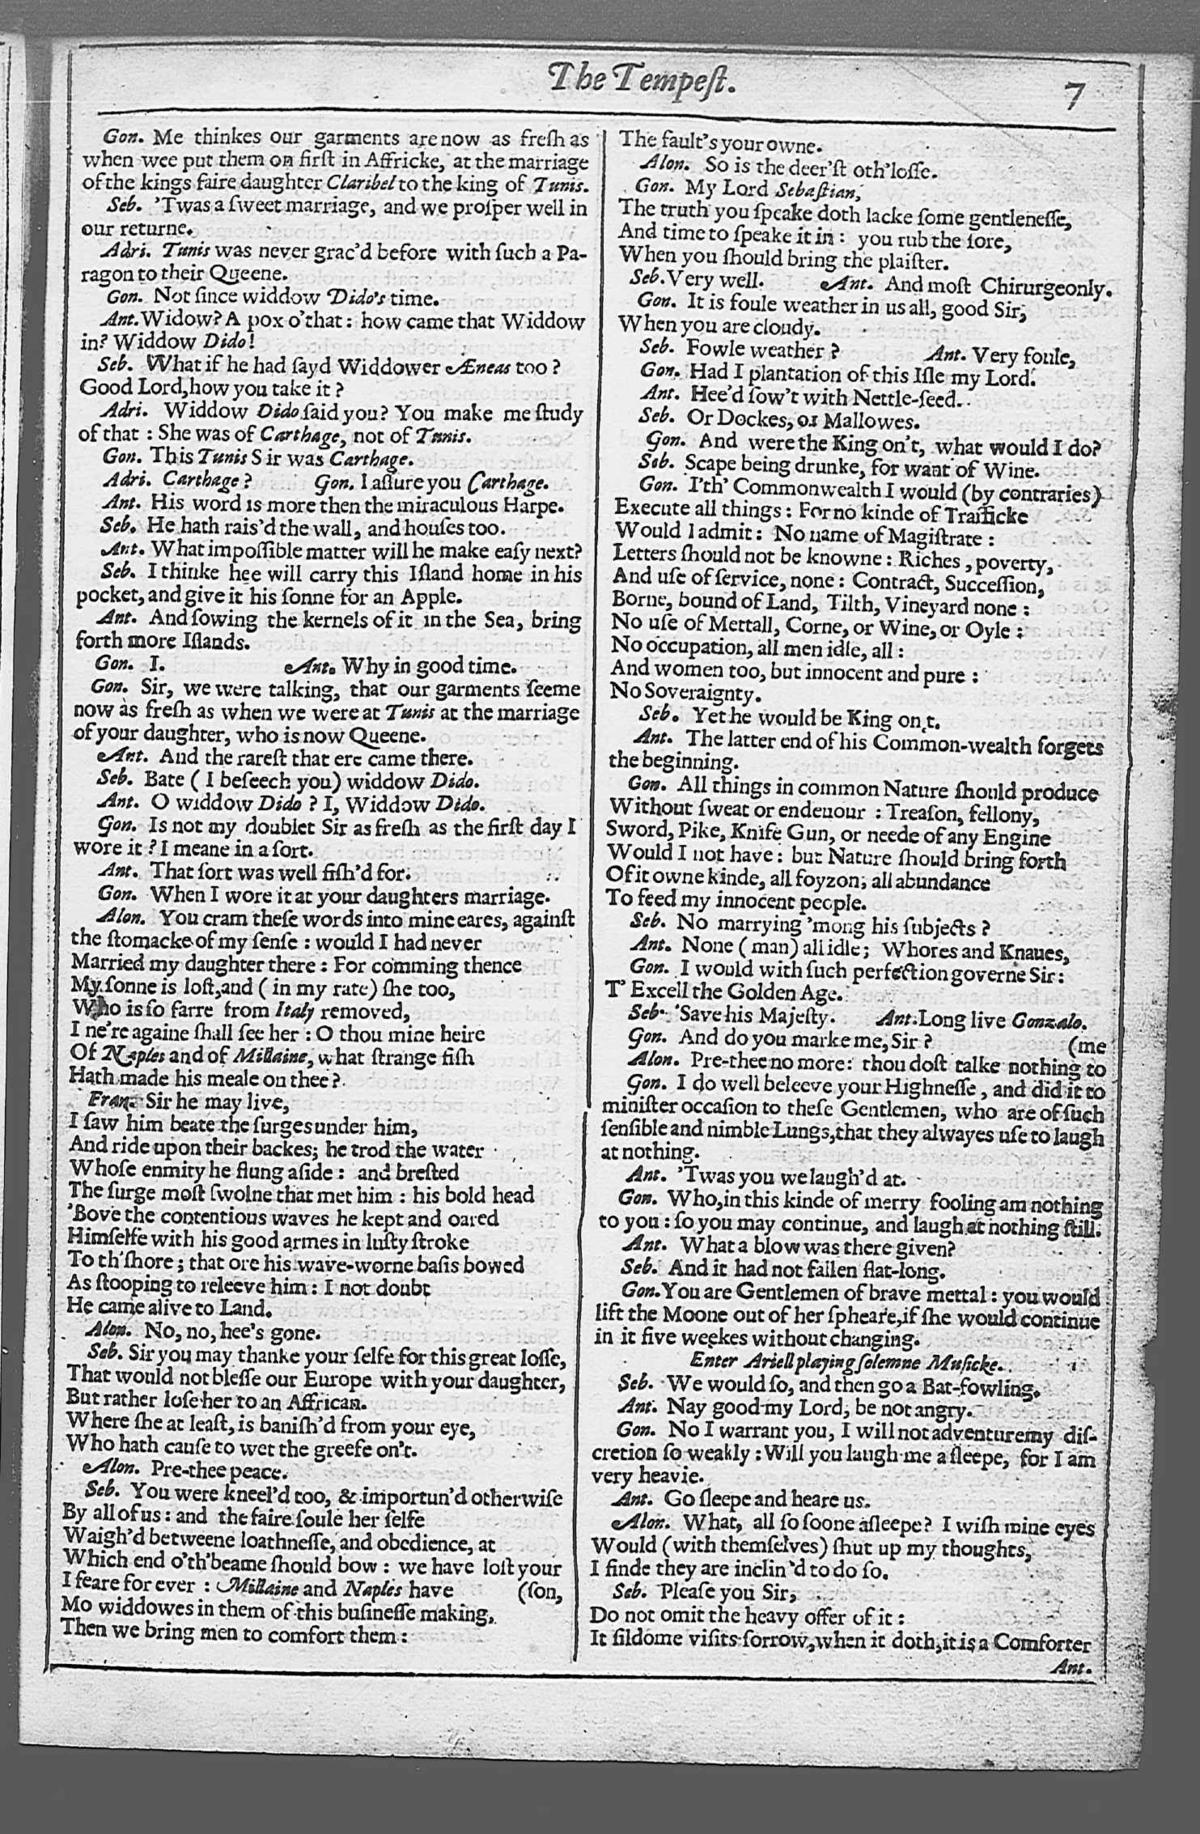 The Tempeſt.
7
Gon. Me thinkes our garments are now as freſh as
when wee put them on firſt in Affricke, at the marriage
of the kings faire daughter Claribel to the king of Tunis.
Seb. 'Twas a ſweet marriage, and we proſper well in
our returne.
Adri. Tunis was never grac'd before with ſuch a Pa-
ragon to their Queene.
Gon. Not ſince widdow Dido's time.
Ant. Widow? A pox o'that: how came that Widdow
in? Widdow Dido!
Seb. What if he had ſayd Widdower Æneas too?
Good Lord, how you take it?
Adri. Widdow Dido ſaid you? You make me ſtudy
of that: She was of Carthage, not of Tunis.
Gon. This Tunis Sir was Carthage.
Adri. Carthage? Gon. I aſſure you Carthage.
Ant. His word is more then the miraculous Harpe.
Seb. He hath rais'd the wall, and houſes too.
Ant. What impoſſible matter will he make eaſy next?
Seb. I thinke hee will carry this Iſland home in his
pocket, and give it his ſonne for an Apple.
Ant. And ſowing the kernels of it in the Sea, bring
forth more Iſlands.
Gon. I. Ant. Why in good time.
Gon. Sir, we were talking, that our garments ſeeme
now as freſh as when we were at Tunis at the marriage
of your daughter, who is now Queene.
Ant. And the rareſt that ere came there.
Seb. Bate (I beſeech you) widdow Dido.
Ant. O widdow Dido? I, Widdow Dido.
Gon. Is not my doublet Sir as freſh as the firſt day I
wore it? I meane in a ſort.
Ant. That ſort was well fiſh'd for.
Gon. When I wore it at your daughters marriage.
Alon. You cram theſe words into mine eares, againſt
the ſtomacke of my ſenſe: would I had never
Married my daughter there: For comming thence
My ſonne is loſt, and (in my rate) ſhe too,
Who is ſo farre from Italy removed,
I ne're againe ſhall ſee her: O thou mine heire
Of Naples and of Millaine, what ſtrange fiſh
Hath made his meale on thee?
Fran. Sir he may live,
I ſaw him beate the ſurges under him,
And ride upon their backes; he trod the water
Whoſe enmity he flung aſide: and breſted
The ſurge moſt ſwolne that met him: his bold head
'Bove the contentious waves he kept and oared
Himſelfe with his good armes in luſty ſtroke
To th'ſhore; that ore his wave-worne baſis bowed
As ſtooping to releeve him: I not doubt
He came alive to Land.
Alon. No, no, hee's gone.
Seb. Sir you may thanke your ſelfe for this great loſſe,
That would not bleſſe our Europe with your daughter,
But rather loſe her to an Affrican.
Where ſhe at leaſt, is baniſh'd from your eye,
Who hath cauſe to wet the greefe on't.
Alon. Pre-thee peace.
Seb. You were kneel'd too, & importun'd otherwiſe
By all of us: and the faire ſoule her ſelfe
Waigh'd betweene loathneſſe, and obedience, at
Which end o'th'beame ſhould bow: we have loſt your
I feare for ever: Millaine and Naples have (ſon,
Mo widdowes in them of this buſineſſe making,
Then we bring men to comfort them:
The fault's your owne.
Alon. So is the deer'ſt oth'loſſe.
Gon. My Lord Sebaſtian,
The truth you ſpeake doth lacke ſome gentleneſſe,
And time to ſpeake it in: you rub the ſore,
When you ſhould bring the plaiſter.
Seb. Very well. Ant. And moſt Chirurgeonly.
Gon. It is foule weather in us all, good Sir,
When you are cloudy.
Seb. Fowle weather? Ant. Very foule,
Gon. Had I plantation of this Iſle my Lord.
Ant. Hee'd ſow't with Nettle-ſeed.
Seb. Or Dockes, or Mallowes.
Gon. And were the King on't, what would I do?
Seb. Scape being drunke, for want of Wine.
Gon. I'th' Commonwealth I would (by contraries)
Execute all things: For no kinde of Trafficke
Would I admit: No name of Magiſtrate:
Letters ſhould not be knowne: Riches, poverty,
And uſe of ſervice, none: Contract, Succeſſion,
Borne, bound of Land, Tilth, Vineyard none:
No uſe of Mettall, Corne, or Wine, or Oyle:
No occupation, all men idle, all:
And women too, but innocent and pure:
No Soveraignty.
Seb. Yet he would be King on't.
Ant. The latter end of his Common-wealth forgets
the beginning.
Gon. All things in common Nature ſhould produce
Without ſweat or endeuour: Treaſon, fellony,
Sword, Pike, Knife Gun, or neede of any Engine
Would I not have: but Nature ſhould bring forth
Of it owne kinde, all foyzon, all abundance
To feed my innocent people.
Seb. No marrying 'mong his ſubjects?
Ant. None (man) all idle; Whores and Knaues,
Gon. I would with ſuch perfection governe Sir:
T' Excell the Golden Age.
Seb. 'Save his Majeſty. Ant. Long live Gonzalo.
Gon. And do you marke me, Sir? (me
Alon. Pre-thee no more: thou doſt talke nothing to
Gon. I do well beleeve your Highneſſe, and did it to
miniſter occaſion to theſe Gentlemen, who are of ſuch
ſenſible and nimble Lungs, that they alwayes uſe to laugh
at nothing.
Ant. 'Twas you we laugh'd at.
Gon. Who, in this kinde of merry fooling am nothing
to you: ſo you may continue, and laugh at nothing ſtill.
Ant. What a blow was there given?
Seb. And it had not fallen flat-long.
Gon. You are Gentlemen of brave mettal: you would
lift the Moone out of her ſpheare, if ſhe would continue
in it five weekes without changing.
Enter Ariell playing ſolemne Muſicke.
Seb. We would ſo, and then go a Bat-fowling.
Ant. Nay good my Lord, be not angry.
Gon. No I warrant you, I will not adventure my diſ-
cretion ſo weakly: Will you laugh me aſleepe, for I am
very heavie.
Ant. Go ſleepe and heare us.
Alon. What, all ſo ſoone aſleepe? I wiſh mine eyes
Would (with themſelves) ſhut up my thoughts,
I finde they are inclin'd to do ſo.
Seb. Pleaſe you Sir,
Do not omit the heavy offer of it:
It ſildome viſits ſorrow, when it doth, it is a Comforter
Ant.